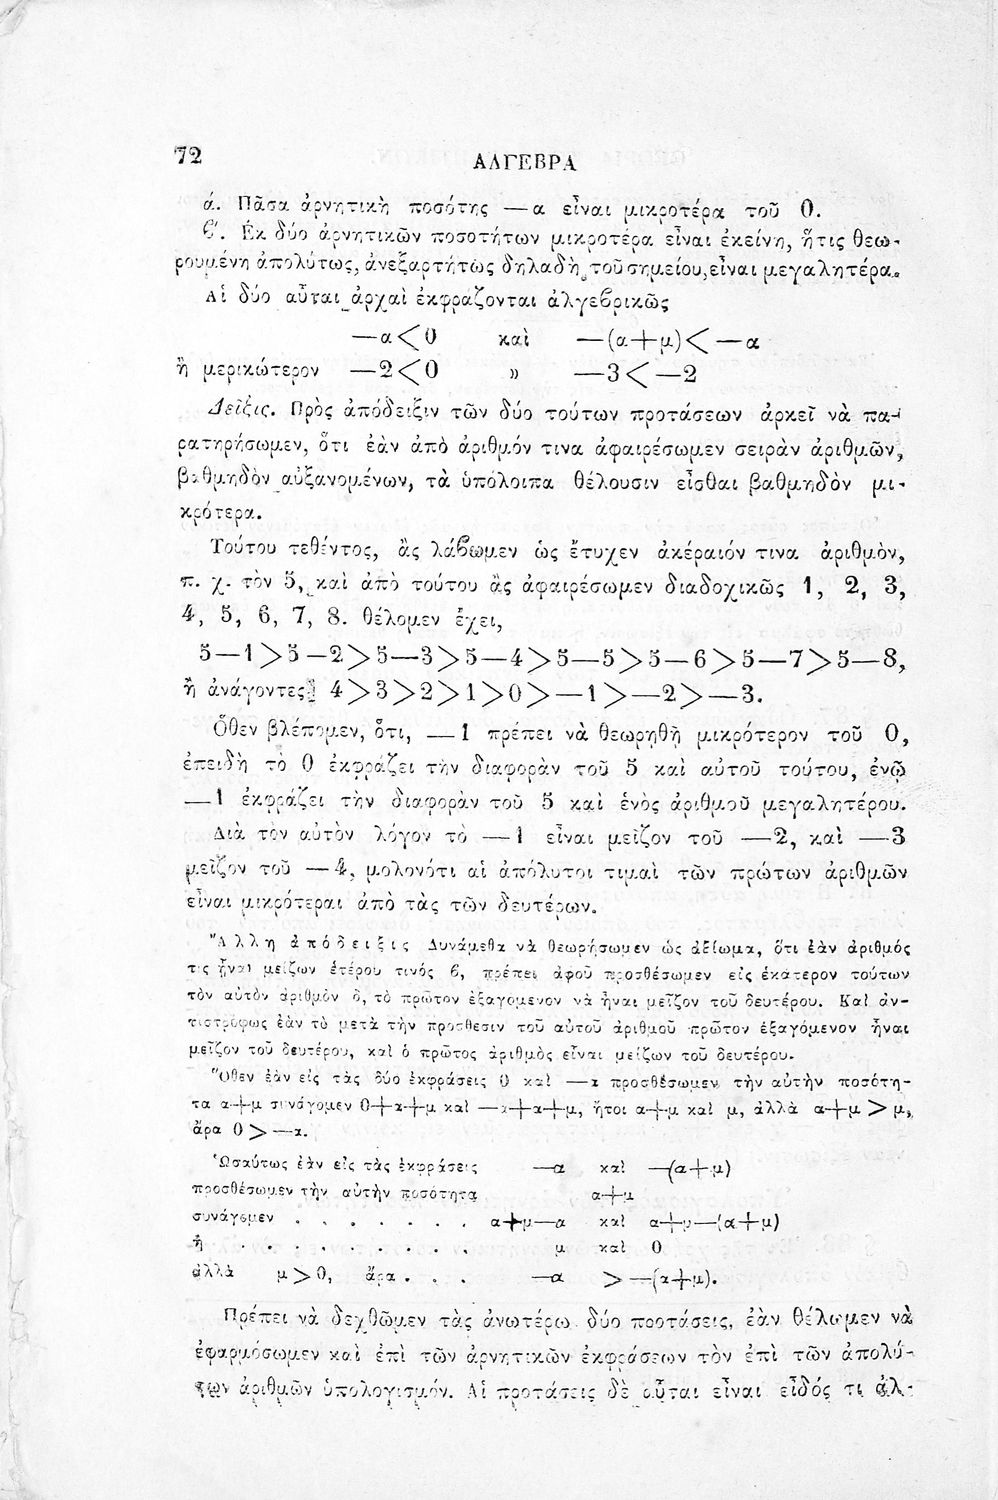 72
ΑΛΓΕΒΡΑ
ά. Πᾶσα ἀρνητικὴ ποσότης —α εἶναι μικροτέρα τοῦ 0.
ϐ′. Ἐκ δύο ἀρνητικῶν ποσοτήτων μικροτέρα εἶναι ἐκείνη, ἥτις θεω-
ρουμένη ἀπολύτως, ἀνεξαρτήτως δηλαδὴ τοῦ σημείου, εἶναι μεγαλητέρα.
Αἱ δύο αὗται ἀρχαὶ ἐκφράζονται ἀλγεϐρικῶς
—α<0 καὶ —(α+μ)< —α
ἢ μερικώτερον —2<0 » —3< —2
Δεῖξις. Πρὸς ἀπόδειξιν τῶν δύο τούτων προτάσεων ἀρκεῖ νὰ πα-
ρατηρήσωμεν, ὅτι ἐὰν ἀπὸ ἀριθμόν τινα ἀφαιρέσωμεν σειρὰν ἀριθμῶν,
βαθμηδὸν αὐξανομένων, τὰ ὑπόλοιπα θέλουσιν εἶσθαι βαθμηδὸν μι-
κρότερα.
Τούτου τεθέντος, ἂς λάϐωμεν ὡς ἔτυχεν ἀκέραιόν τινα ἀριθμὸν,
π. χ. τὸν 5, καὶ ἀπὸ τούτου ἂς ἀφαιρέσωμεν διαδοχικῶς 1, 2, 3,
4, 5, 6, 7, 8. θέλομεν ἔχει,
5—1>5—2>5—3>5—4>5—5>5—6>5—7>5—8,
ἢ ἀνάγοντες 4>3>2>1>0>—1>—2>—3.
Ὅθεν βλέπομεν, ὅτι, —1 πρέπει νὰ θεωρηθῇ μικρότερον τοῦ 0,
ἐπειδὴ τὸ 0 ἐκφράζει τὴν διαφορὰν τοῦ 5 καὶ αὐτοῦ τούτου, ἐνῷ
—1 ἐκφράζει τὴν διαφορὰν τοῦ 5 καὶ ἑνὸς ἀριθμοῦ μεγαλητέρου.
Διὰ τὸν αὐτὸν λόγον τὸ —1 εἶναι μεῖζον τοῦ —2, καὶ —3
μεῖζον τοῦ —4, μολονότι αἱ ἀπόλυτοι τιμαὶ τῶν πρώτων ἀριθμῶν
εἶναι μικρότεραι ἀπὸ τὰς τῶν δευτέρων.
Ἄλλη ἀπόδειξις Δυνάμεθα νὰ θεωρήσωμεν ὡς ἀξίωμα, ὅτι ἐὰν ἀριθμός
τις ἦναι μείζων ἑτέρου τινός ϐ, πρέπει ἀφοῦ προσθέσωμεν εἰς ἑκάτερον τούτων
τὸν αὐτὸν ἀριθμὸν δ, τὸ πρῶτον ἐξαγόμενον νὰ ἦναι μεῖζον τοῦ δευτέρου. Καὶ ἀν-
τιστρόφως ἐὰν τὸ μετὰ τὴν προσθεσιν τοῦ αὐτοῦ ἀριθμοῦ πρῶτον ἐξαγόμενον ἦναι
μεῖζον τοῦ δευτέρου, καὶ ὁ πρῶτος ἀριθμὸς εἶναι μείζων τοῦ δευτέρου.
Ὅθεν ἐὰν εἰς τὰς δύο ἐκφράσεις 0 καὶ —α προσθέσωμεν τὴν αὐτὴν ποσότη-
τα α+μ συνάγομεν 0+α+μ καὶ —α+α+μ, ἤτοι α+μ καὶ μ, ἀλλὰ α+μ > μ,
ἄρα 0 > —α.
Ὡσαύτως ἐὰν εἰς τὰς ἐκφράσεις —α καὶ —(α+μ)
προσθέσωμεν τὴν αὐτὴν ποσότητα α+μ
συνάγομεν . . . . . . . α+μ—α καὶ α+μ—(α+μ)
ἢ . . . . . . . . . . μ καὶ 0
ἀλλὰ μ>0, ἄρα . . . —α > —(α+μ).
Πρέπει νὰ δεχθῶμεν τὰς ἀνωτέρω δύο προτάσεις, ἐὰν θέλωμεν νὰ
ἐφαρμόσωμεν καὶ ἐπὶ τῶν ἀρνητικῶν ἐκφράσεων τὸν ἐπὶ τῶν ἀπολύ-
των ἀριθμῶν ὑπολογισμόν. Αἱ προτάσεις δὲ αὗται εἶναι εἶδός τι ἀλ-